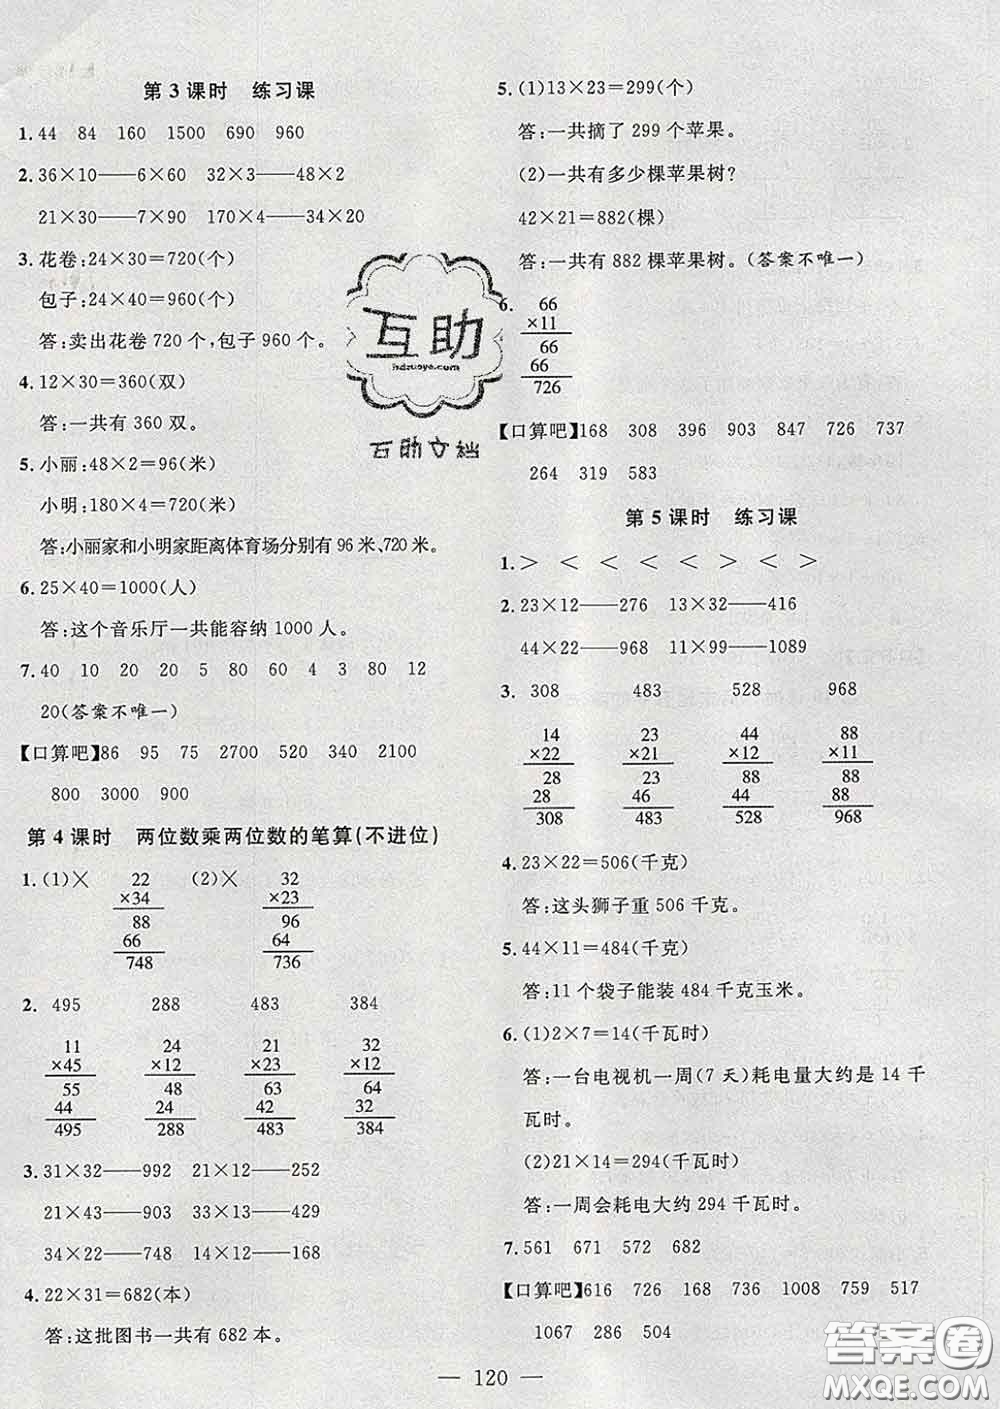 第3课时　练习课
1. 44　84　160　1500　690　960
2. 36×10——6×60　32×3——48×2
21×30——7×90　170×4——34×20
3. 花卷:24×30=720(个)
包子:24×40=960(个)
答:卖出花卷720个,包子960个。
4. 12×30=360(双)
答:一共有360双。
5. 小丽:48×2=96(米)
小明:180×4=720(米)
答:小丽家和小明家距离体育场分别有96米、720米。
6. 25×40=1000(人)
答:这个音乐厅一共能容纳1000人。
7. 40　10　20　20　5　80　60　4　3　80　12
20(答案不唯一)
【口算吧】86　95　75　2700　520　340　2100
800　3000　900
第4课时　两位数乘两位数的笔算(不进位)
1. (1)×　22　(2)×　32
×34　×23
88　96
66　64
748　736
2. 495　288　483　384
11　24　21　32
×45　×12　×23　×12
55　48　63　64
44　24　42　32
495　288　483　384
3. 31×32——992　21×12——252
21×43——903　33×13——429
34×22——748　14×12——168
4. 22×31=682(本)
答:这批图书一共有682本。
5. (1)13×23=299(个)
答:一共摘了299个苹果。
(2)一共有多少棵苹果树?
42×21=882(棵)
答:一共有882棵苹果树。(答案不唯一)
6. 66
×11
66
66
726
【口算吧】168　308　396　903　847　726　737
264　319　583
第5课时　练习课
1. >　<　<　<　<　>　<　>
2. 23×12——276　13×32——416
44×22——968　11×99——1089
3. 308　483　528　968
14　23　44　88
×22　×21　×12　×11
28　23　88　88
28　46　44　88
308　483　528　968
4. 23×22=506(千克)
答:这头狮子重506千克。
5. 44×11=484(千克)
答:11个袋子能装484千克玉米。
6. (1)2×7=14(千瓦时)
答:一台电视机一周(7天)耗电量大约是14千
瓦时。
(2)21×14=294(千瓦时)
答:一周会耗电大约294千瓦时。
7. 561　671　572　682
【口算吧】616　726　168　736　1008　759　517
1067　286　504
— 120 —
互助
hdzuoye.com
互助文档
答案圈
MXQE.COM